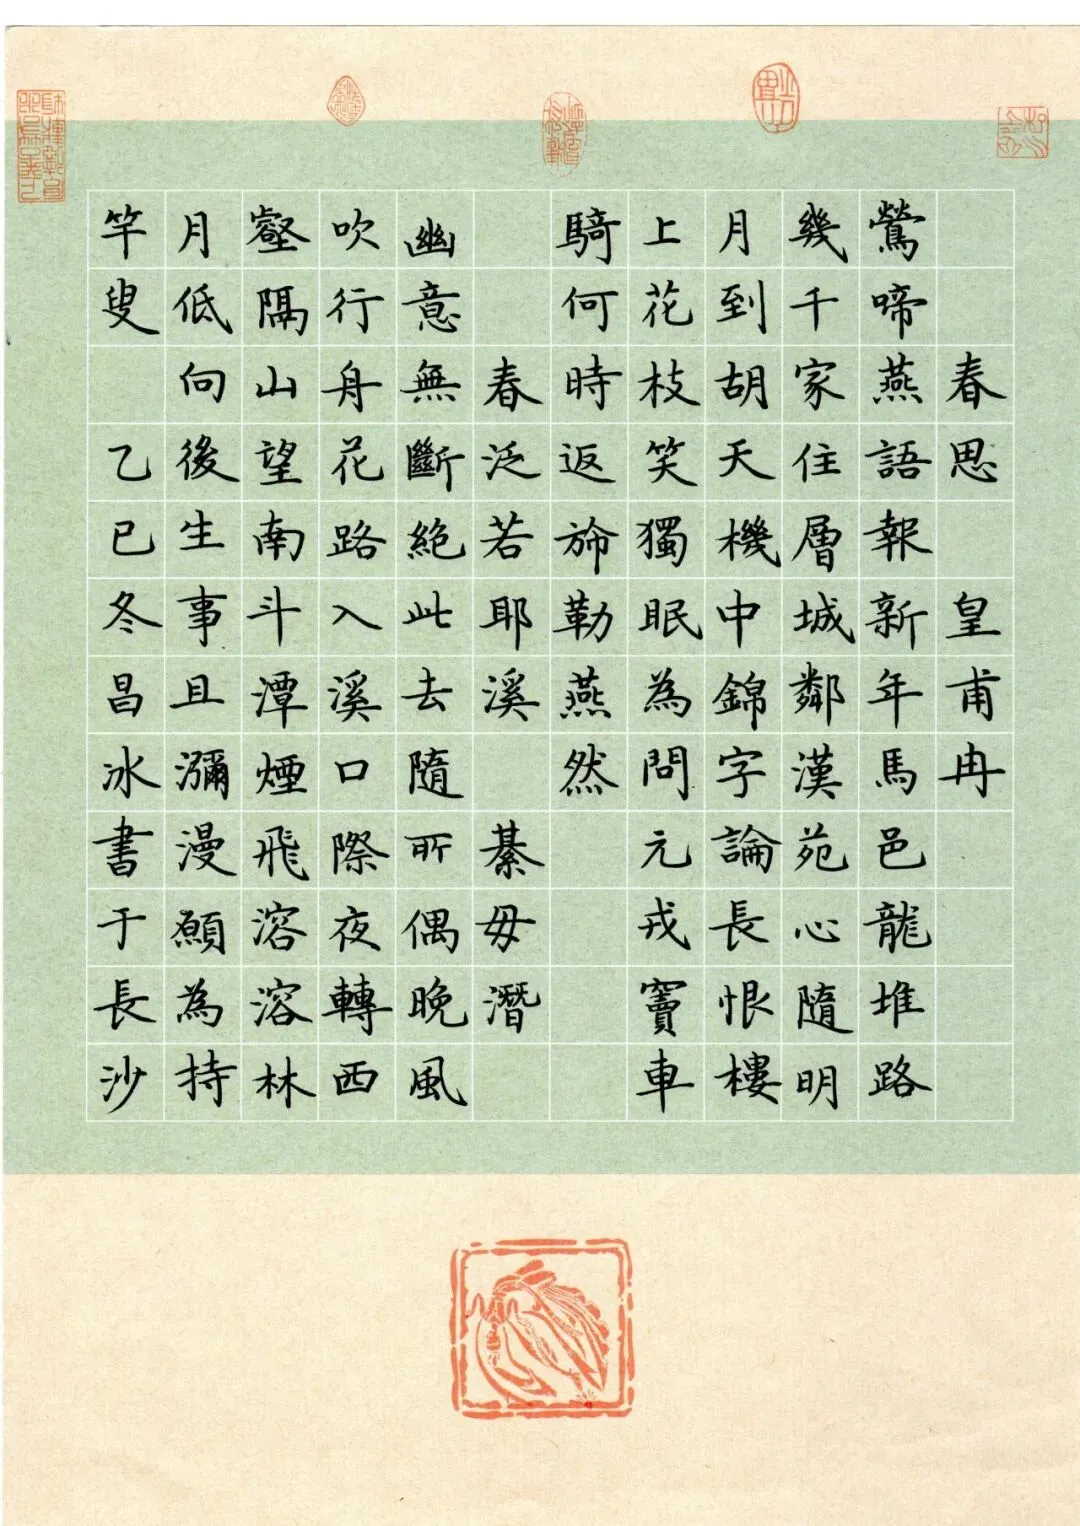 春思 皇甫冉
鶯啼燕語報新年馬邑龍堆路
幾千家住層城鄰漢苑心隨明
月到胡天機中錦字論長恨樓
上花枝笑獨眠為問元戎竇車
騎何時返斾勒燕然
春泛若耶溪 綦毋潛
幽意無斷絕此去隨所偶晚風
吹行舟花路入溪口際夜轉西
壑隔山望南斗潭煙飛溶溶林
月低向後生事且瀰漫願為持
竿叟 乙巳冬昌冰書于長沙